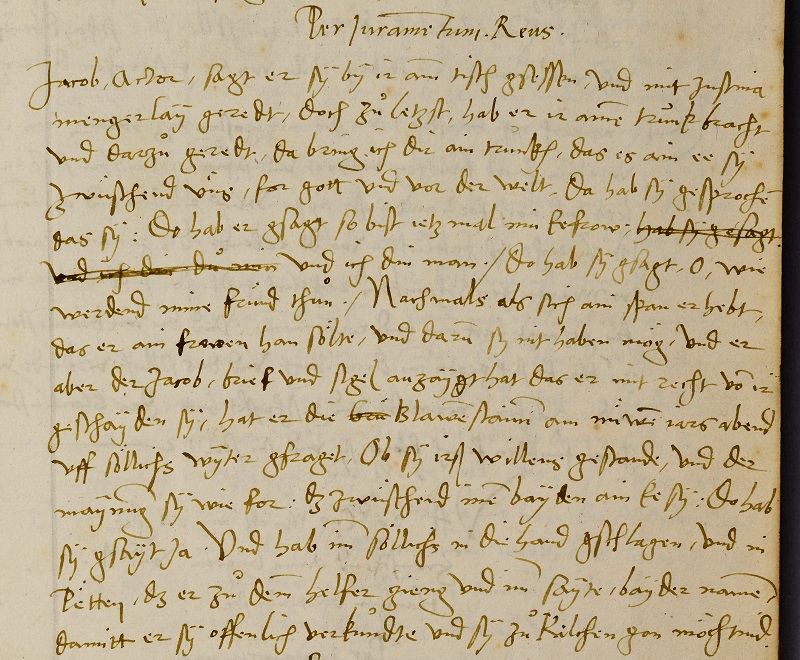 Per Iuramentum. Reus.
Jacob, Actor, sagt er sÿ bÿ ir am tisch gsessen, und mit Justina
mengerlaÿ geredt, doch zů letzst, hab er ir ainē trunk bracht
und darzů geredt, da bring ich dir ain trunk, das es ain ee sÿ
zwüschend üns, for gott und vor der welt. Da hab sÿ gesprochē
das sÿ. Do hab er gsagt so bist ietz mal min Eefrow, hab sÿ gesagt.
und ich din man / Do hab sÿ gsagt. O, wie
werdend mine fründ thůn. / Nachmals als sich ain span erhebt,
das er ain frowen han sölte, und darū sÿ nit haben mög, und er
aber der Jacob, brief und sigel anzaÿgt hat das er mit recht vō ir
geschaÿden sÿ, hat er die Blawēstainī am nüwē iars abend
uff söllichs wÿter gfraget, Ob sÿ irss willens gestande, und der
maÿnung sÿ wie for. dz zwüschend inē baÿden ain Ee sÿ. Do hab
sÿ gsaÿt Ja. Und hab im söllichs in die hand gschlagen, und in
petten, dz er zů dem helfer gieng und im saÿte, baÿder namē,
damitt er sÿ offenlich verkündte und sÿ zů Kilchen gon möchtind.